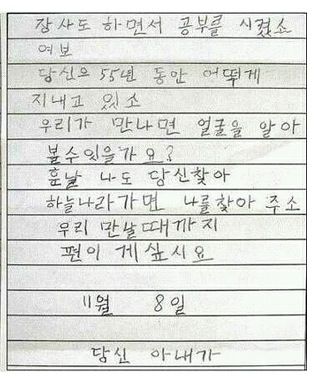 장사도 하면서 공부를 시켰소
여보
당신은 55년 동안 어떻게
지내고 있소
우리가 만나면 얼굴을 알아
볼수있을가요?
훈날 나도 당신찾아
하늘나라가면 나를찾아 주소
우리 만날때까지
편이 게싶시요
11월 8일
당신 아내가